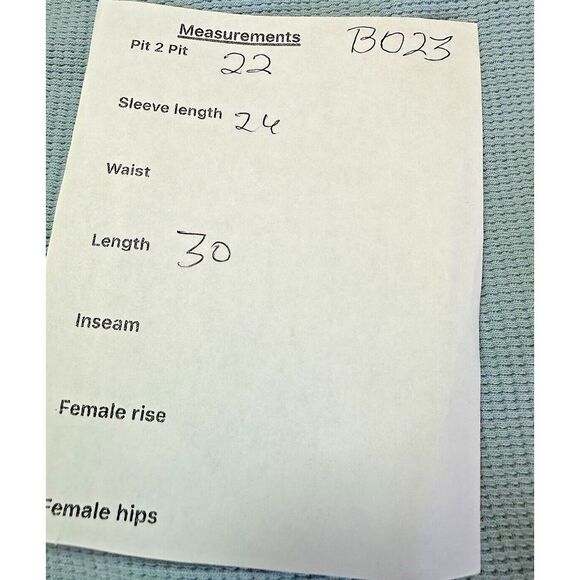 Measurements B023
Pit 2 Pit 22
Sleeve length 24
Waist
Length 30
Inseam
Female rise
Female hips